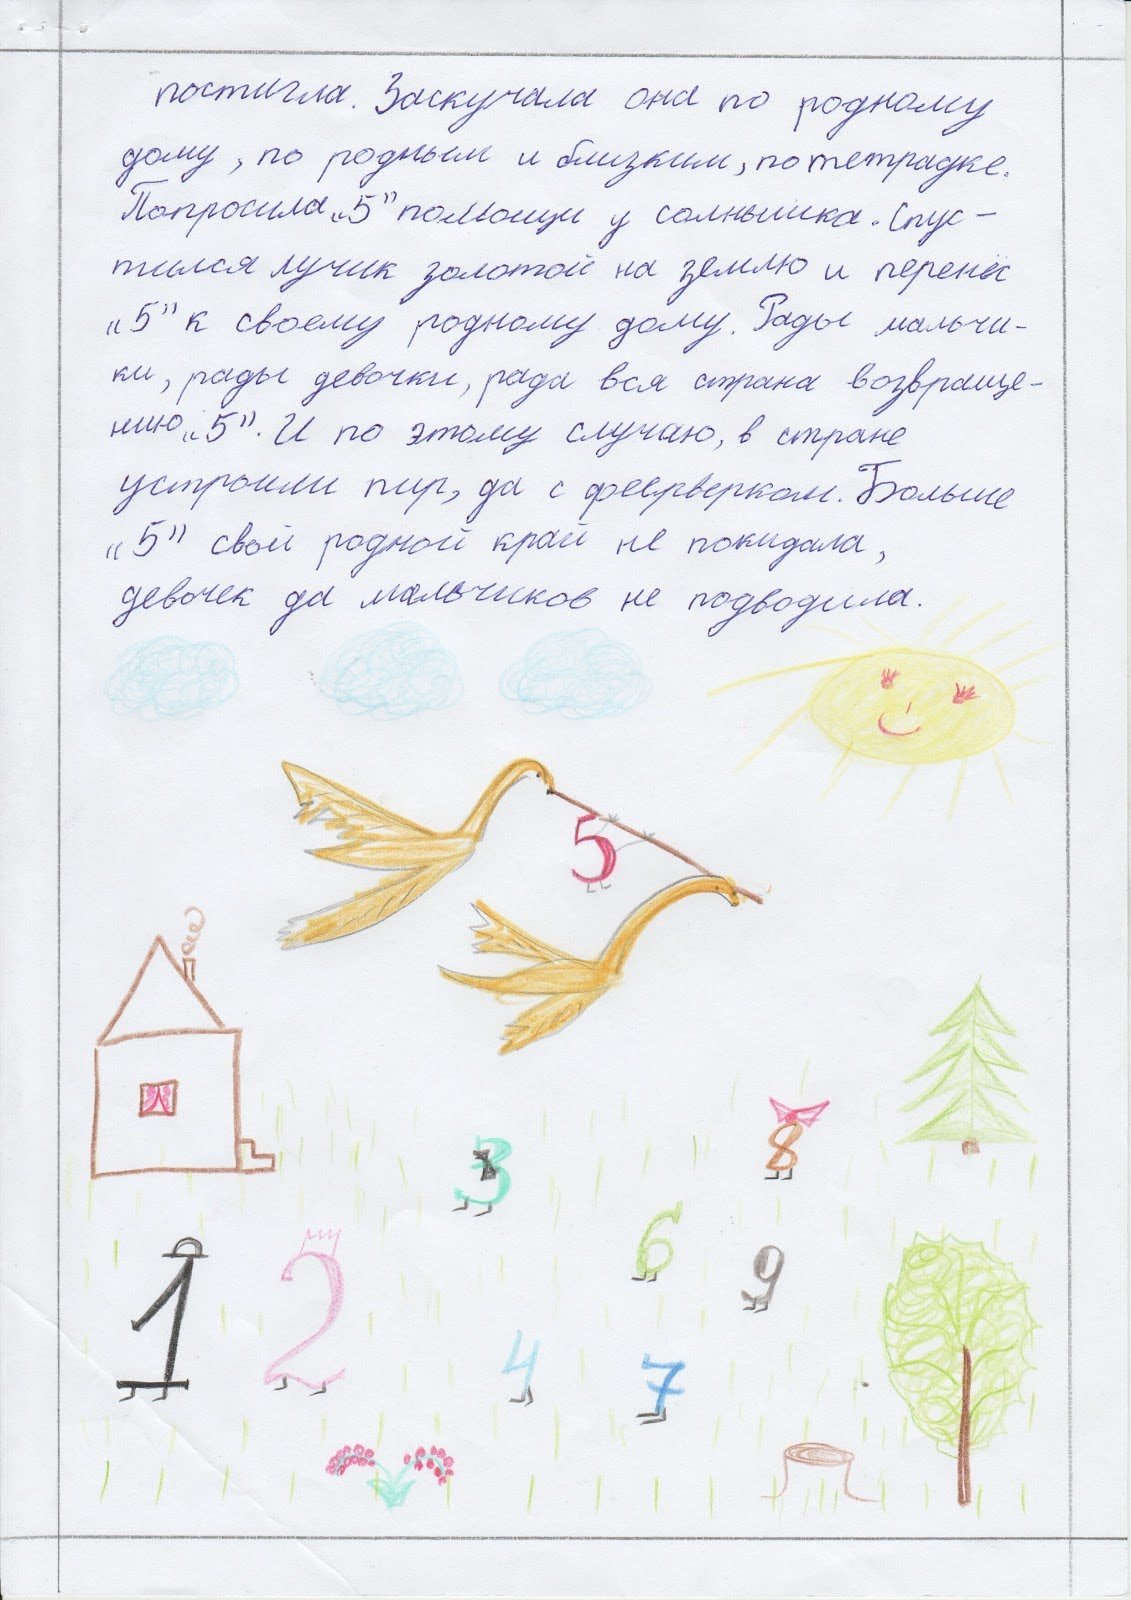 постигла. Заскучала она по родному
дому, по родным и близким, по тетрадке.
Попросила „5” помощи у солнышка. Спус-
тился лучик золотой на землю и перенёс
„5” к своему родному дому. Рады мальчи-
ки, рады девочки, рада вся страна возвраще-
нию „5”. И по этому случаю, в стране
устроили пир, да с феерверком. Больше
„5” свой родной край не покидала,
девочек да мальчиков не подводила.
5
3
8
6
9
1
2
4
7